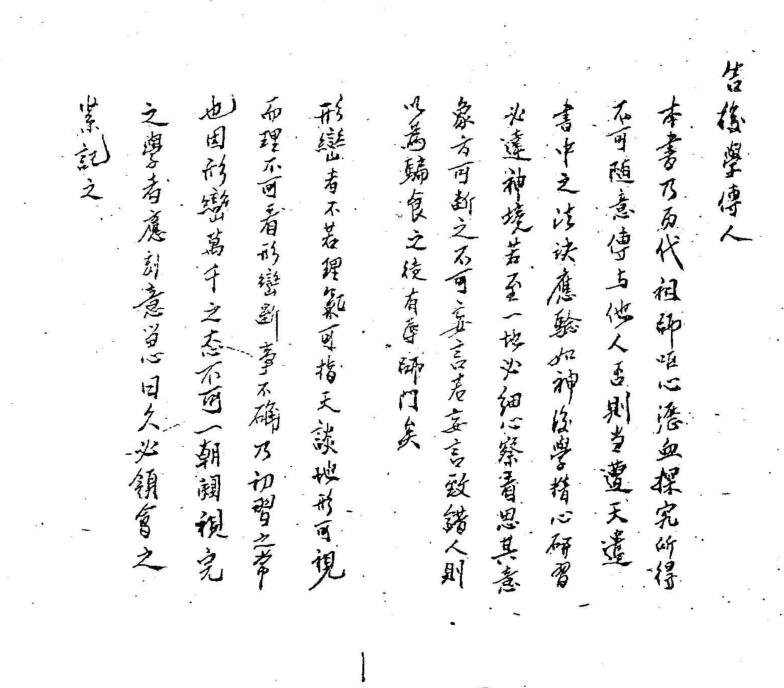 告後學傳人
本書乃历代祖師嘔心瀝血探究所得
不可隨意傳与他人否則当遭天遣
書中之法诀應驗如神後學揩心研習
必達神境若至一地必细心察看思其意
象方可断之不可妄言若妄言致錯人則
以為騙食之徒有辱師门矣
形巒者不若理氣可指天談地形可視
而理不可看形巒斷事不确乃初習之常
也因形巒萬千之态不可一朝阅視完
之學者應刻意留心日久必領會之
紫記之